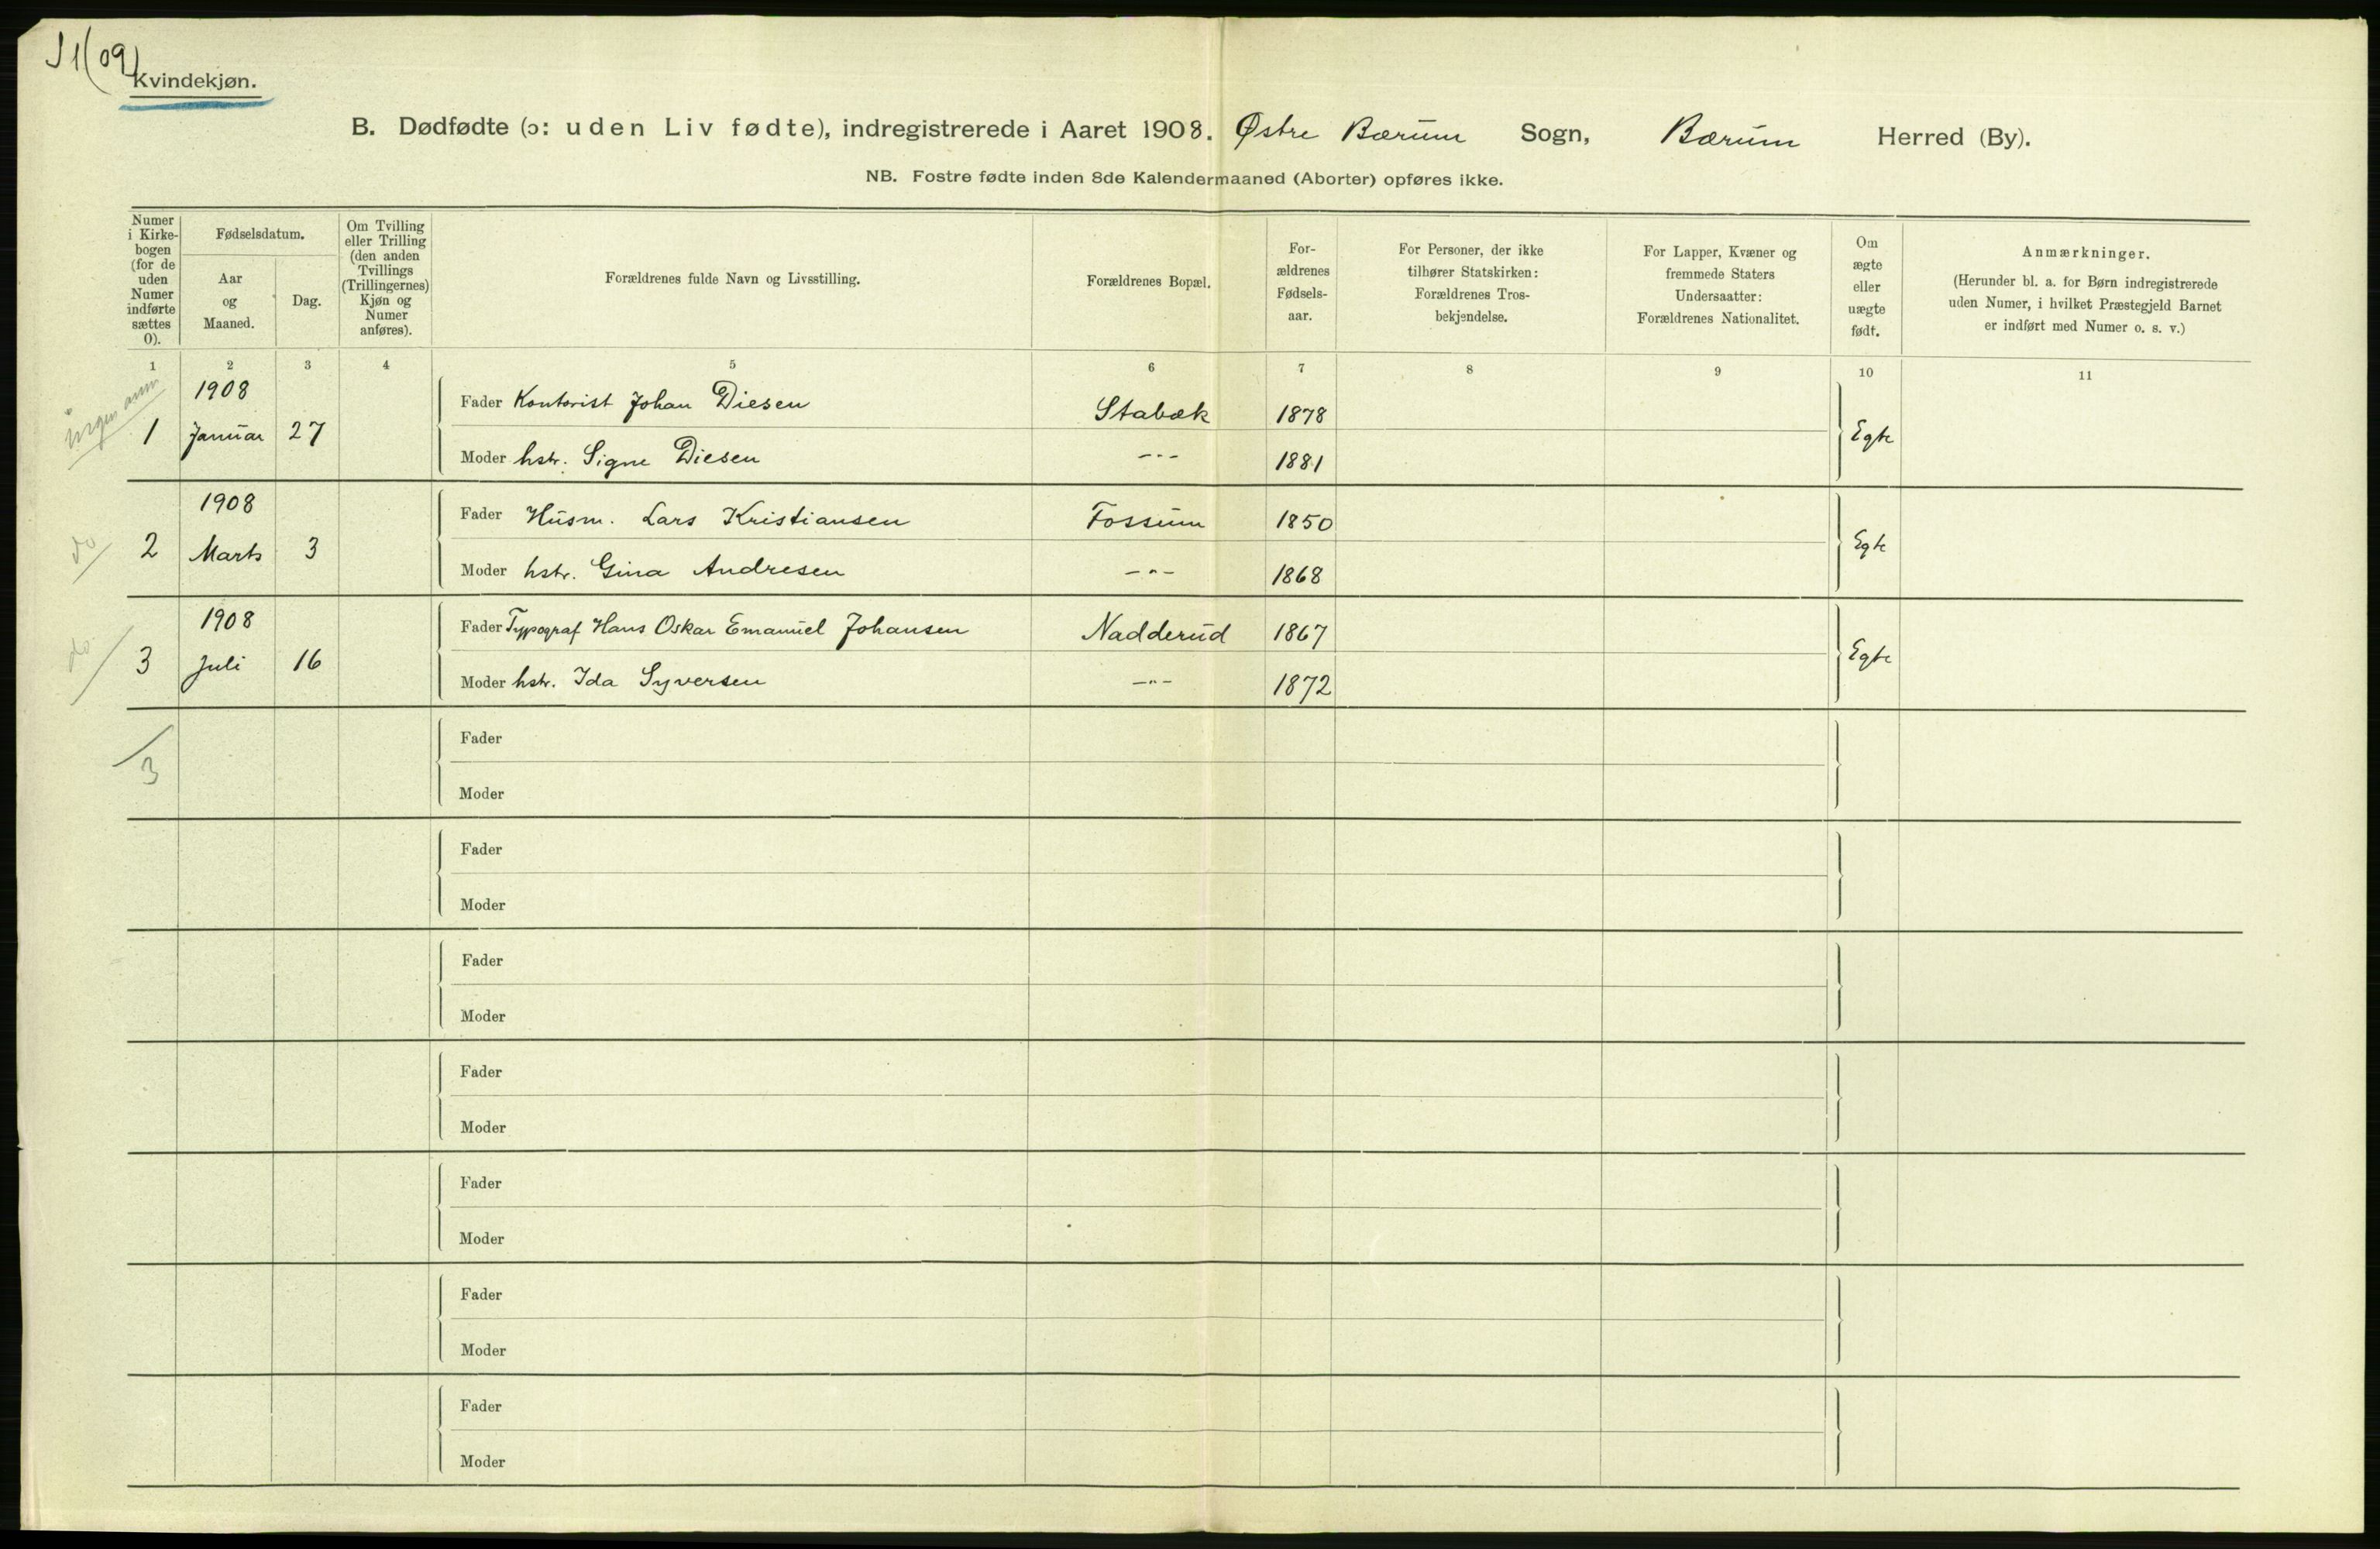 J1(09)
Kvindekjøn.
B. Dødfødte (ɔ: uden Liv fødte), indregistrerede i Aaret 1908. Østre Bærum Sogn, Bærum Herred (By).
NB. Fostre fødte inden 8de Kalendermaaned (Aborter) opføres ikke.
Numer i Kirke-bogen (for de uden Numer indførte sættes 0).
Fødselsdatum.
Aar og Maaned.
Dag.
Om Tvilling eller Trilling (den anden Tvillings (Trillingernes) Kjøn og Numer anføres).
Forældrenes fulde Navn og Livsstilling.
Forældrenes Bopæl.
For-ældrenes Fødsels-aar.
For Personer, der ikke tilhører Statskirken: Forældrenes Tros-bekjendelse.
For Lapper, Kvæner og fremmede Staters Undersaatter: Forældrenes Nationalitet.
Om ægte eller uægte født.
Anmærkninger.
(Herunder bl. a. for Børn indregistrerede uden Numer, i hvilket Præstegjeld Barnet er indført med Numer o. s. v.)
1 2 3 4 5 6 7 8 9 10 11
1908
Fader Kontorist Johan Diesen Stabæk 1878
1 Januar 27 Egte
Moder hstr. Signe Diesen -"- 1881
1908
Fader Husm. Lars Kristiansen Fossum 1850
do 2 Marts 3 Egte
Moder hstr. Gina Andresen -"- 1868
1908
Fader Typograf Hans Oskar Emanuel Johansen Nadderud 1867
do 3 Juli 16 Egte
Moder hstr. Ida Syversen -"- 1872
Fader
3
Moder
Fader
Moder
Fader
Moder
Fader
Moder
Fader
Moder
Fader
Moder
Fader
Moder